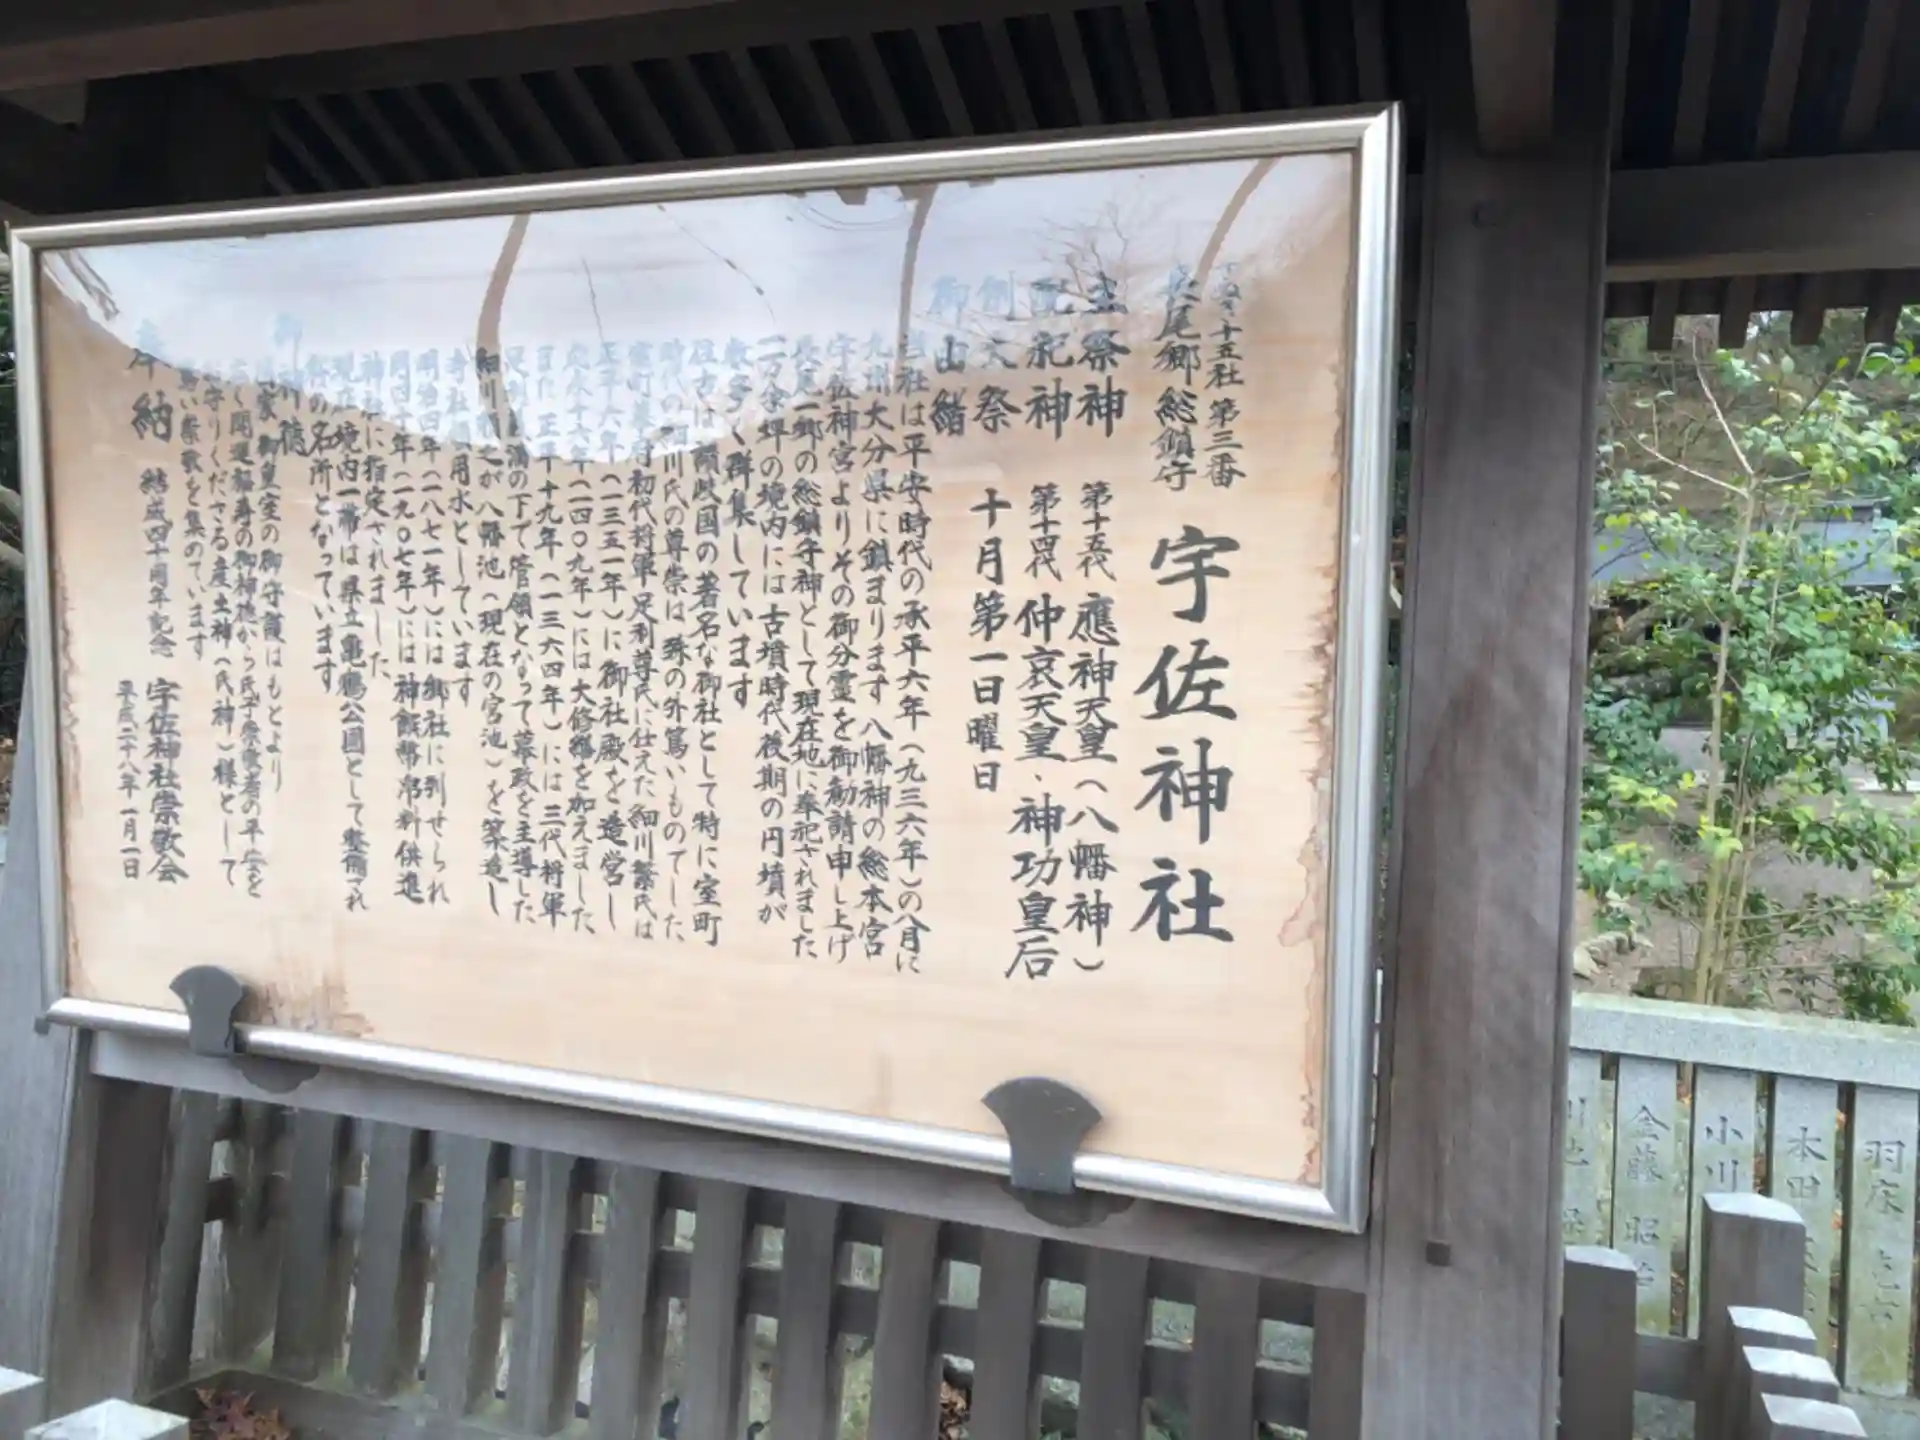 十五社 第三番
長尾郷 総鎮守
宇佐神社
主祭神 第十五代 應神天皇(八幡神)
配祀神 第十四代 仲哀天皇、神功皇后
例大祭 十月第一日曜日
御由緒
当社は平安時代の承平六年(九三六年)の八月に
九州大分県に鎮まります 八幡神の総本宮
宇佐神宮よりその御分霊を御勧請申し上げ
長尾一郷の総鎮守神として現在地に奉祀されました
二万余坪の境内には古墳時代後期の円墳が
数多く群集しています
讃岐国の著名な御社として特に室町
時代の細川氏の尊崇は殊の外篤いものでした
室町幕府初代将軍足利尊氏に仕えた細川繁氏は
正平六年(一三五一年)に御社殿を造営し
応永十六年(一四〇九年)には大修繕を加えました
正平十九年(一三六四年)には三代将軍
足利義満の下で管領となって幕政を主導した
細川頼之が八幡池(現在の宮池)を築造し
寺社領の用水としています
明治四年(一八七一年)には郷社に列せられ
同四十年(一九〇七年)には神饌幣帛料供進
神社に指定されました
現在境内一帯は県立亀鶴公園として整備され
桜の名所となっています
御神徳
国家 御皇室の御守護はもとより
開運福寿の御神徳から氏子崇敬者の平安を
お守りくださる産土神(氏神)様として
篤い崇敬を集めています
奉納 結成四十周年記念 宇佐神社崇敬会
平成二十八年一月一日
羽床
本田
小川
金藤 昭